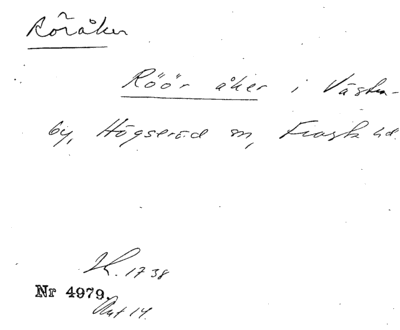 Röråker
Röör åker i Väster-
by, Högseröd sn, Frosta hd.
Sk. 1738
Nr 4979.
Akt 14.